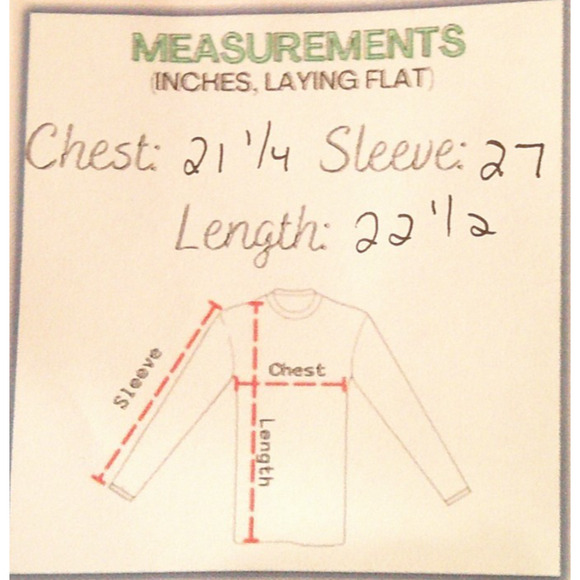 MEASUREMENTS
(INCHES, LAYING FLAT)
Chest: 21 1/4 Sleeve: 27
Length: 22 1/2
Sleeve
Chest
Length